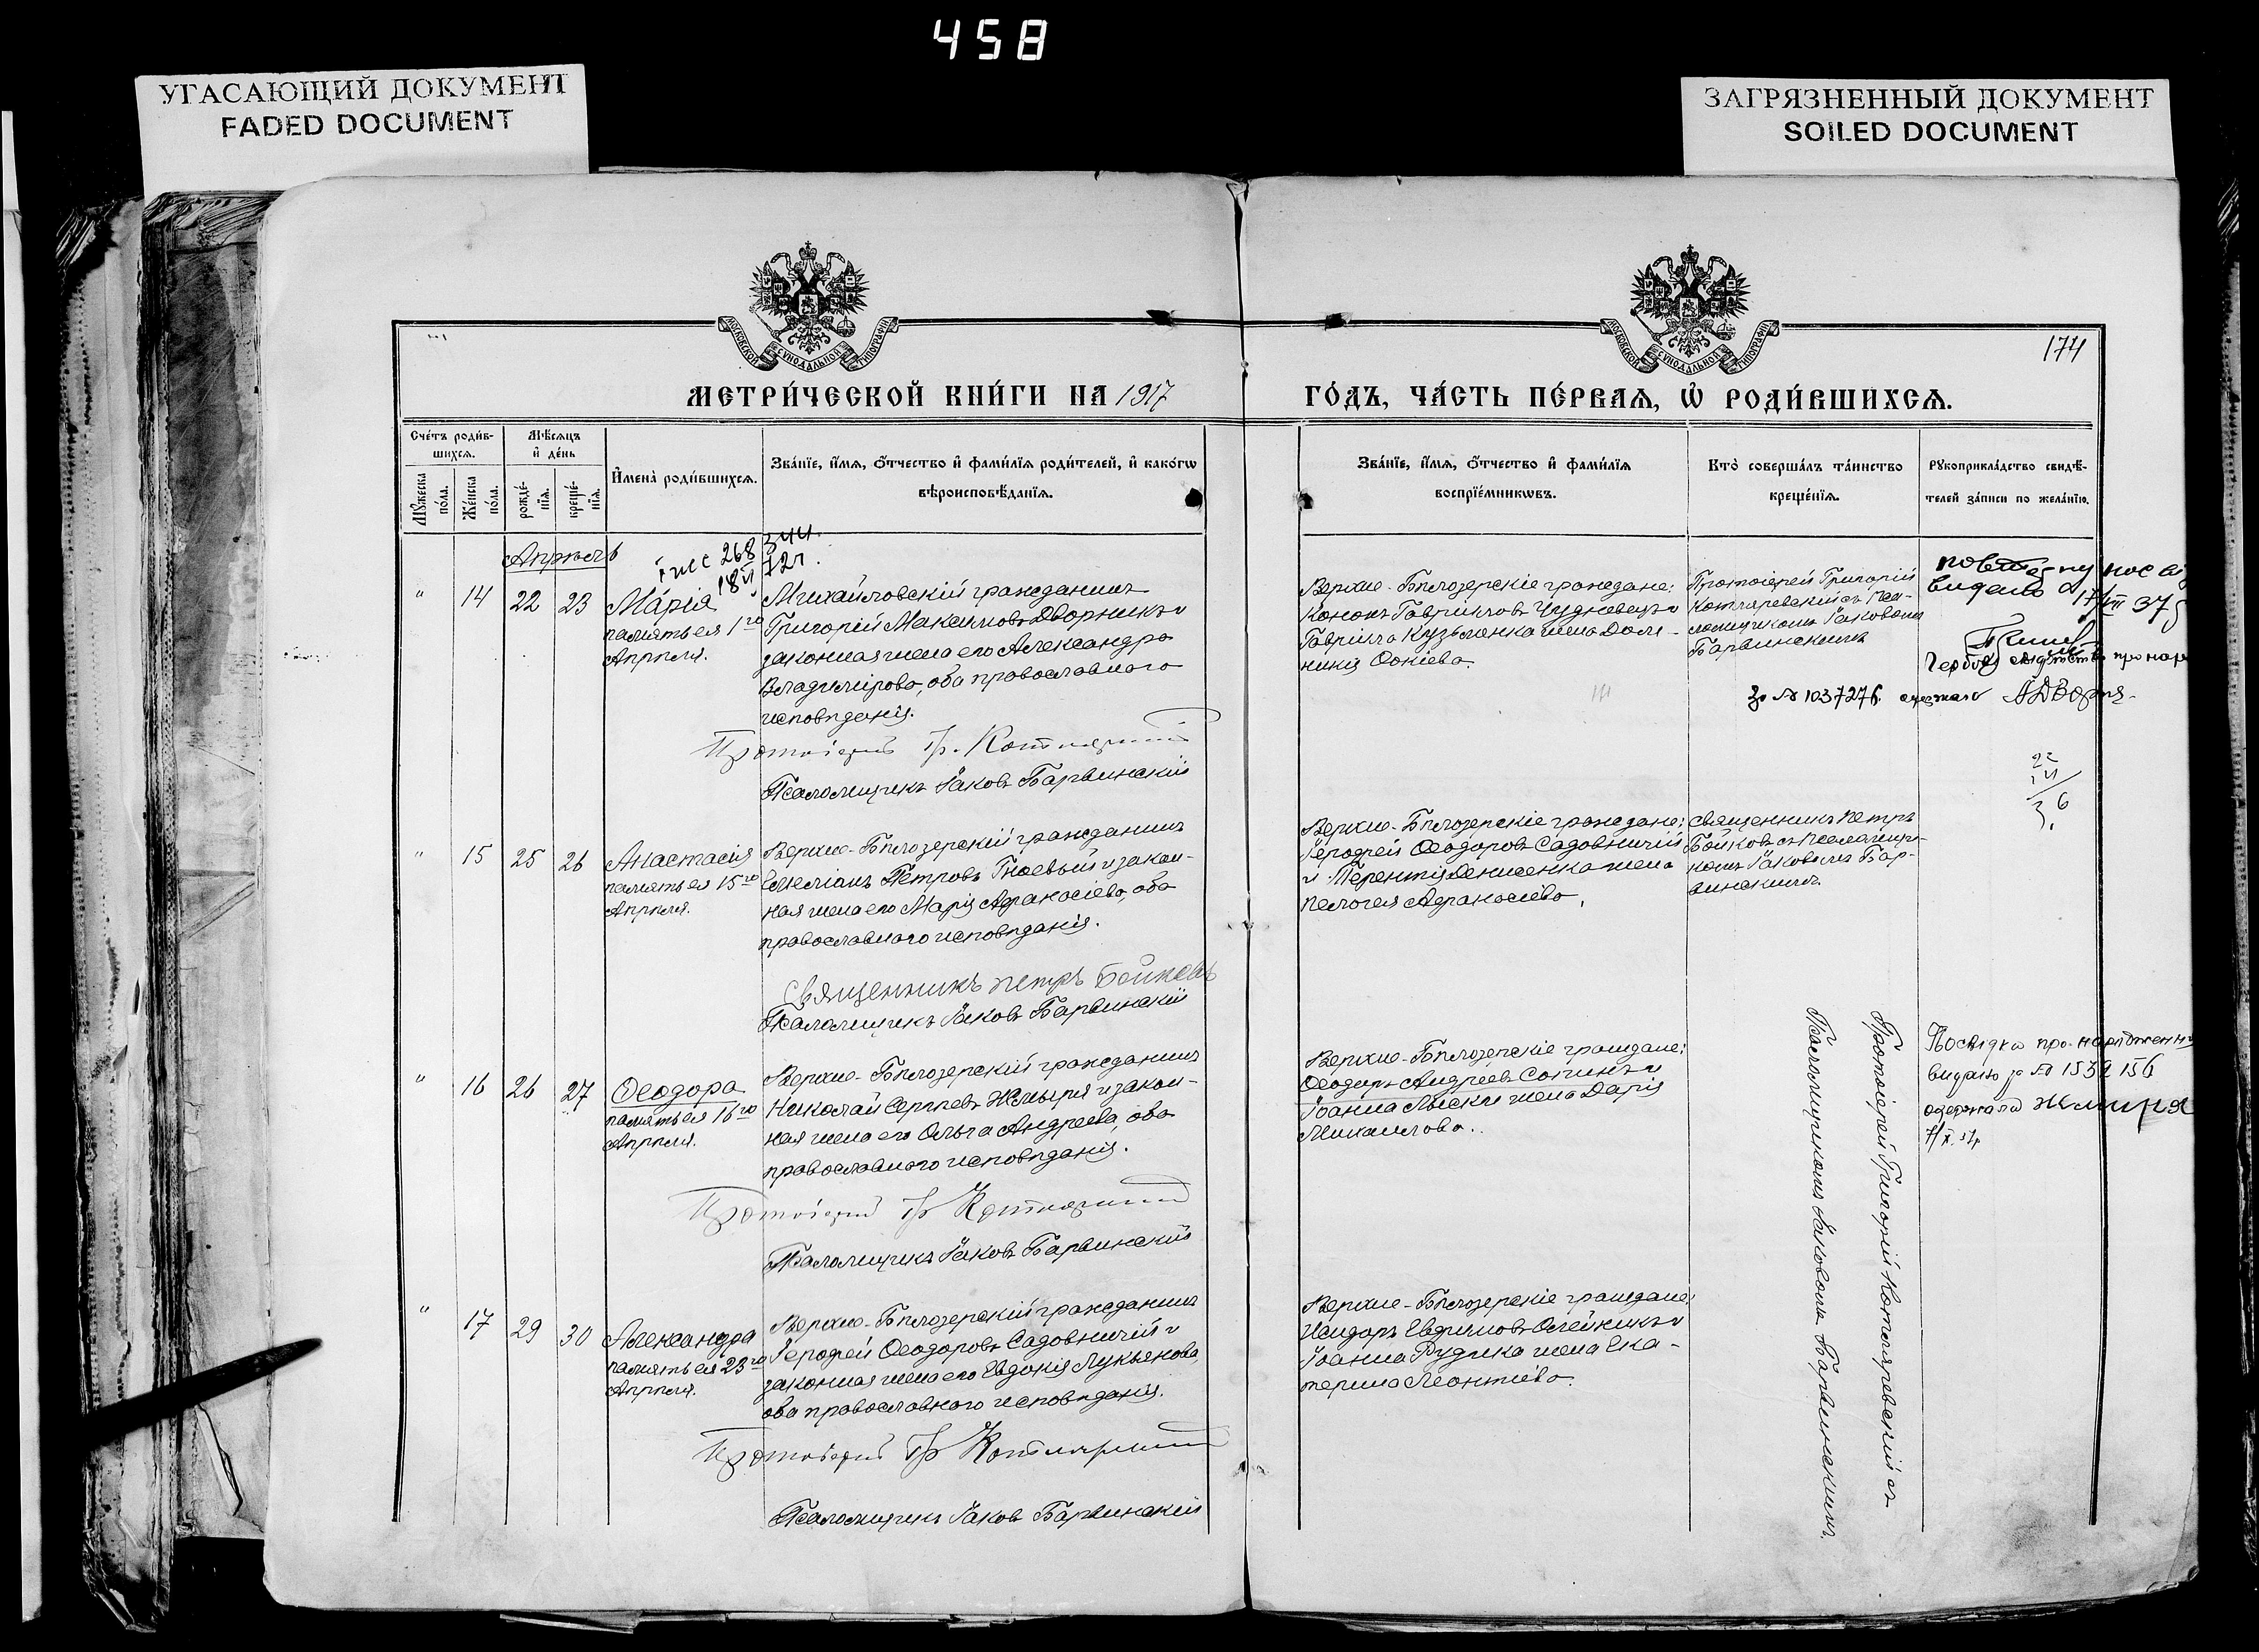 458
УГАСАЮЩИЙ ДОКУМЕНТ
FADED DOCUMENT
ЗАГРЯЗНЕННЫЙ ДОКУМЕНТ
SOILED DOCUMENT
МОСКОВСКОЙ СѴНОДАЛЬНОЙ ТИПОГРАФІИ
МОСКОВСКОЙ СѴНОДАЛЬНОЙ ТИПОГРАФІИ
174
МЕТРИ́ЧЕСКОЙ КНИ́ГИ НА 1917
ГО́ДЪ, ЧА́СТЬ ПЕ́РВАѦ, Ѡ҆ РОДИ́ВШИХСѦ.
Сче́тъ роди́в-
шихсѧ.
Мꙋ́жеска по́ла.
Же́нска по́ла.
Мѣ́сѧцъ
и҆ де́нь
рожде́-
нїѧ.
креще́-
нїѧ.
И҆мена̀ роди́вшихсѧ.
Зва́нїе, и҆́мѧ, ѻ҆́тчество и҆ фами́лїѧ роди́телей, и҆ како́гѡ
вѣроисповѣ́данїѧ.
Зва́нїе, и҆́мѧ, ѻ҆́тчество и҆ фами́лїѧ
воспрїе́мникѡвъ.
Кто̀ соверша́лъ та́инство
креще́нїѧ.
Рꙋкоприкла́дство свидѣ́-
телей за́писи по жела́нїю.
Апрѣль
268
" 14 22 23
Марія
память ея 1го
Апрѣля.
Михайловскій гражданинъ
Григорій Максимовъ Дворникъ и
законная жена его Александра
Владимірова, оба православнаго
исповѣданія.
Протоіерей Гр. Котляревскій
Псаломщикъ Іаковъ Барвинскій
Верхне-Бѣлозерскіе граждане:
Кононъ Гавриловъ Чудновецъ и
Гавриила Кузьменка жена Дом-
никія Окіева.
Протоіерей Григорій
Котляревскій съ Пса-
ломщикомъ Іаковомъ
Барвинскимъ
видано
за № 1037276. одержав
" 15 25 26
Анастасія
память ея 15го
Апрѣля.
Верхне-Бѣлозерскій гражданинъ
Емеліанъ Петровъ Гноевый и закон-
ная жена его Марія Афанасіева, оба
православнаго исповѣданія.
Священникъ Петръ Бойковъ
Псаломщикъ Іаковъ Барвинскій
Верхне-Бѣлозерскіе граждане:
Іерофей Ѳеодоровъ Садовничій
и Терентія Денисенка жена
Пелагея Афанасіева.
Священникъ Петръ
Бойковъ съ Псаломщи-
комъ Іаковомъ Бар-
винскимъ.
" 16 26 27
Ѳеодора
память ея 16го
Апрѣля.
Верхне-Бѣлозерскій гражданинъ
Николай Сергѣевъ Жмыря и закон-
ная жена его Ольга Андреева, оба
православнаго исповѣданія.
Протоіерей Гр Котляревскій
Псаломщикъ Іаковъ Барвинскій
Верхне-Бѣлозерскіе граждане:
Ѳеодоръ Андреевъ Сопинъ и
Іоанна Лыски жена Дарія
Михаилова.
Посвідка про народження
видано за № 1532156
одержала Жмиря
" 17 29 30
Александра
память ея 23го
Апрѣля.
Верхне-Бѣлозерскій гражданинъ
Іерофей Ѳеодоровъ Садовничій и
законная жена его Евдокія Лукьянова,
оба православнаго исповѣданія.
Протоіерей Гр Котляревскій
Псаломщикъ Іаковъ Барвинскій
Верхне-Бѣлозерскіе граждане:
Исидоръ Евфимовъ Олейникъ и
Іоанна Рудика жена Ека-
терина Леонтіева.
Протоіерей Григорій Котляревскій съ
Псаломщикомъ Іаковомъ Барвинскимъ.